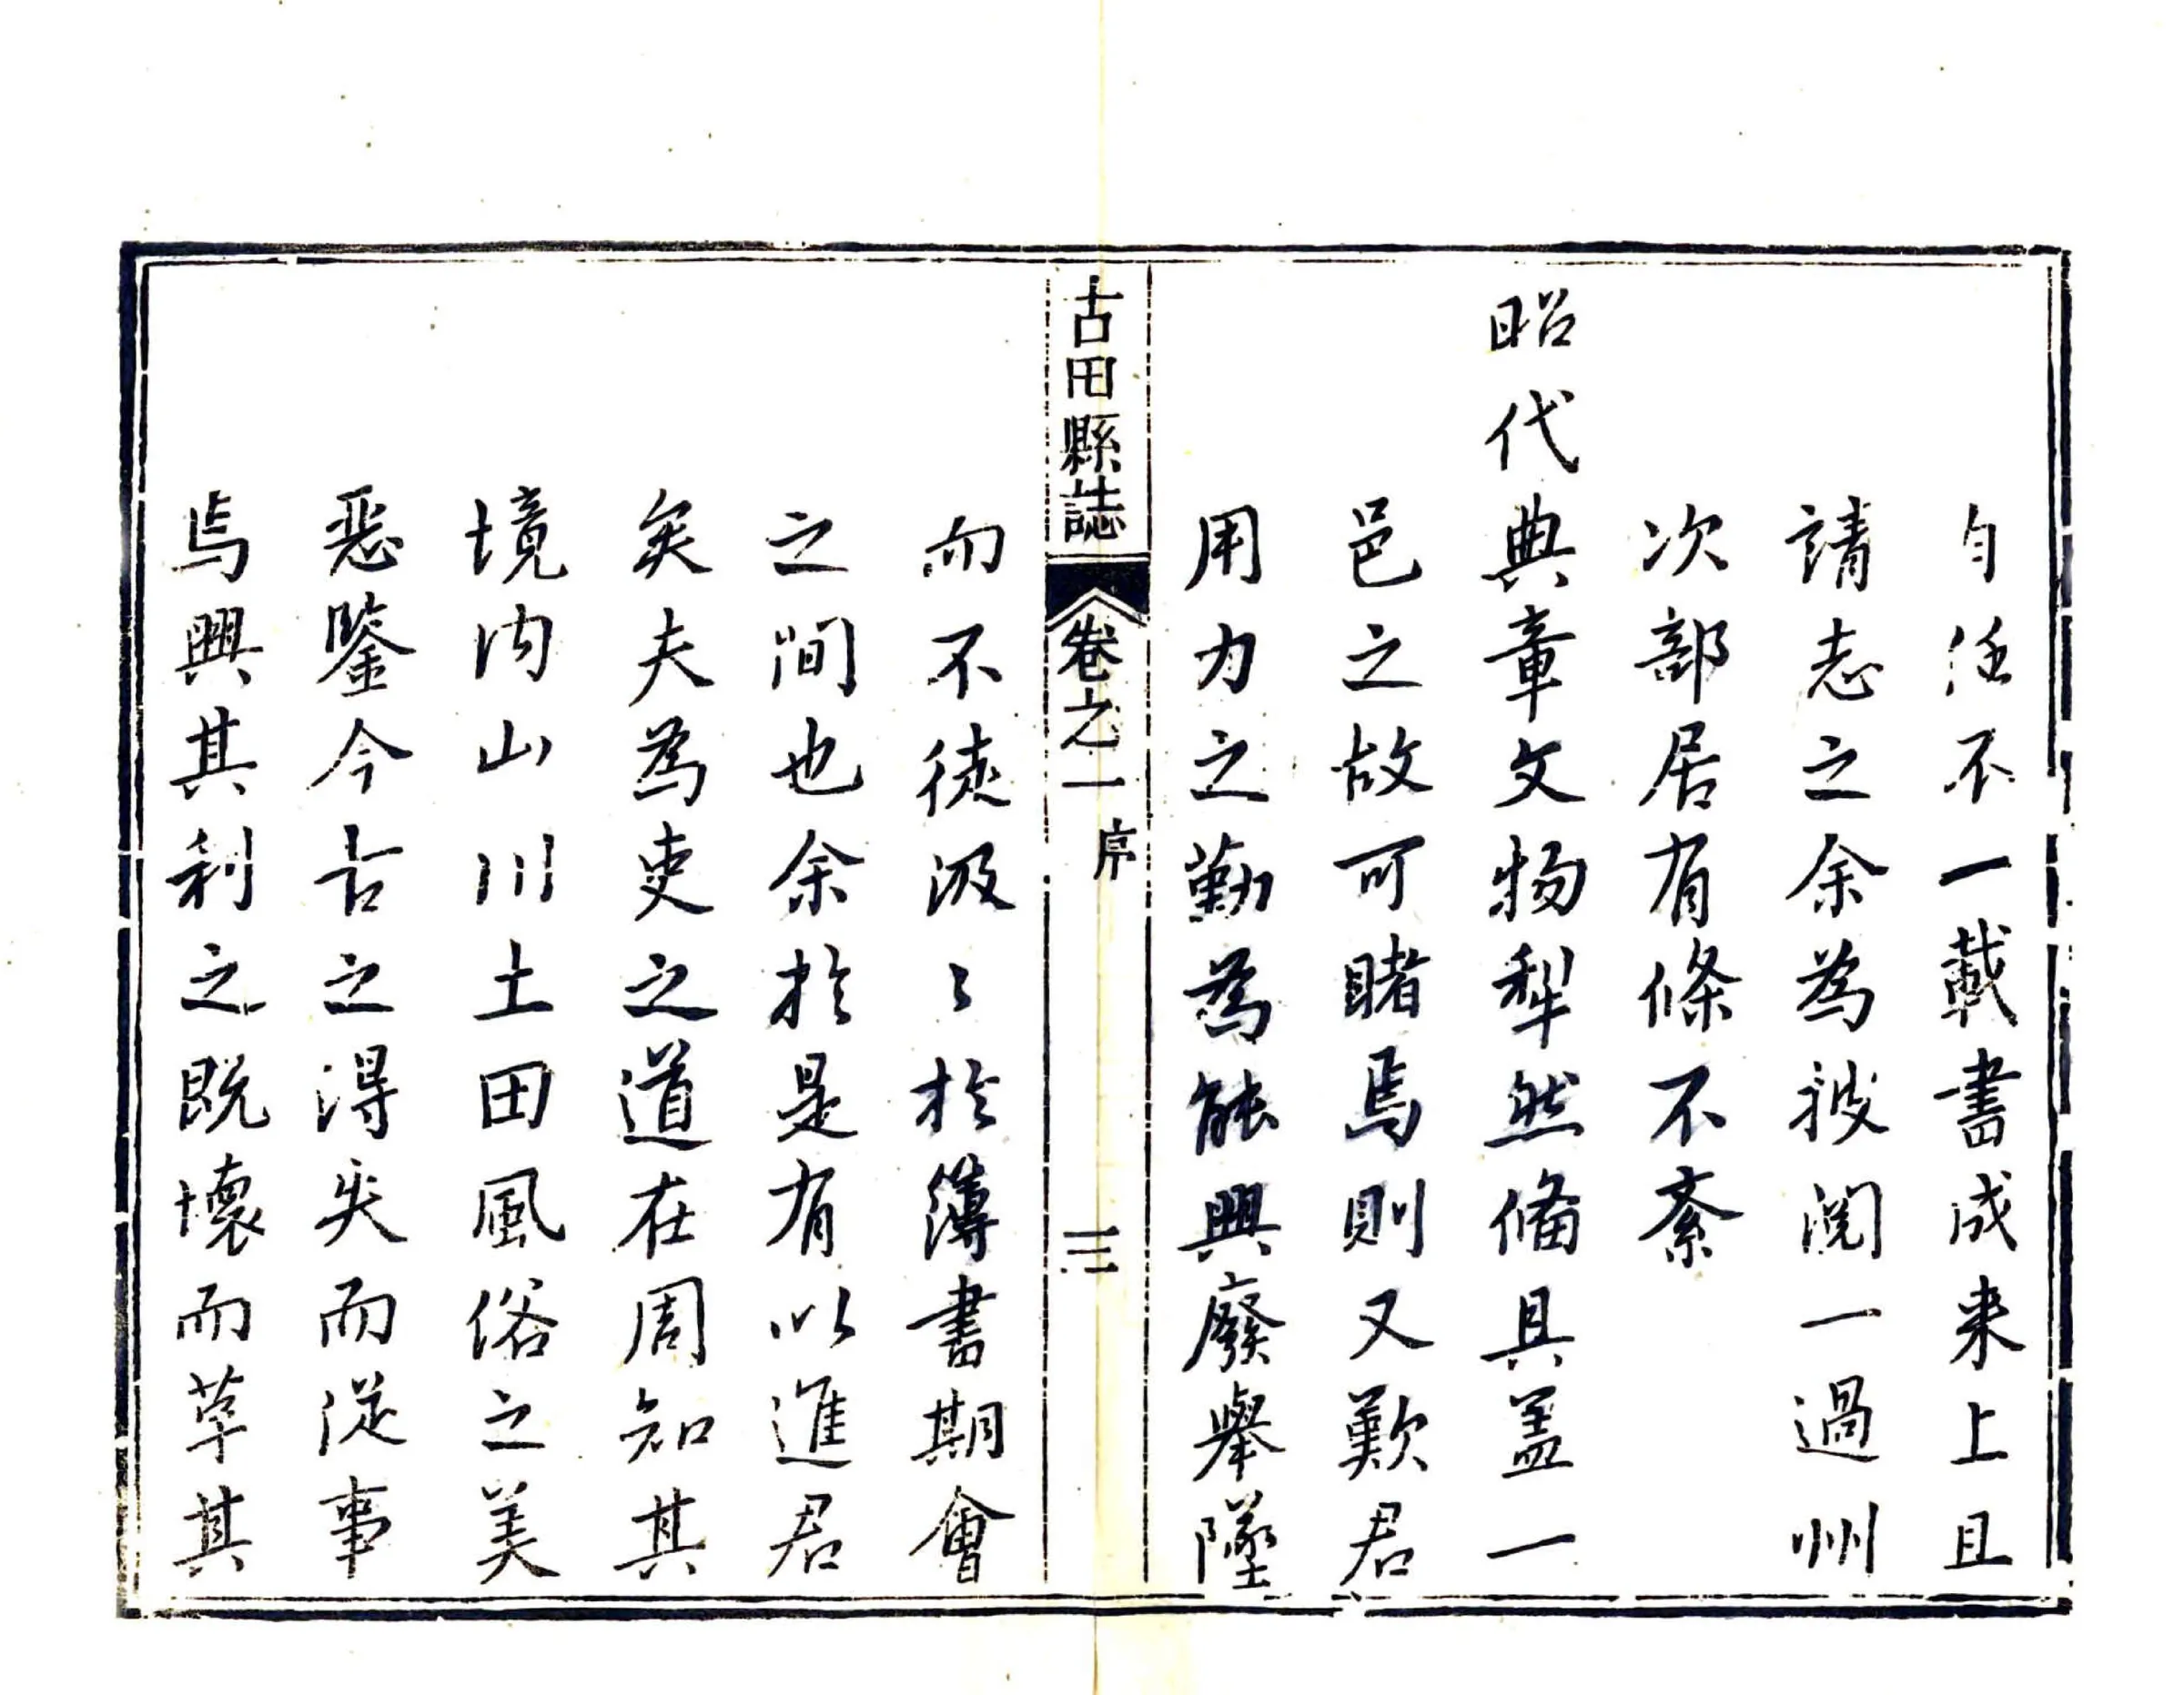 自任不一載書成来上且
請志之余為披閱一過州
次部居有條不紊
昭代典章文物犁然備具盖一
邑之故可睹焉則又歎君
用力之勤為能興廢舉墜
古田縣誌 卷之一 序 三
而不徒汲〻於簿書期會
之間也余於是有以進君
矣夫為吏之道在周知其
境内山川土田風俗之美
惡鑒今古之得失而從事
焉興其利之既壞而革其